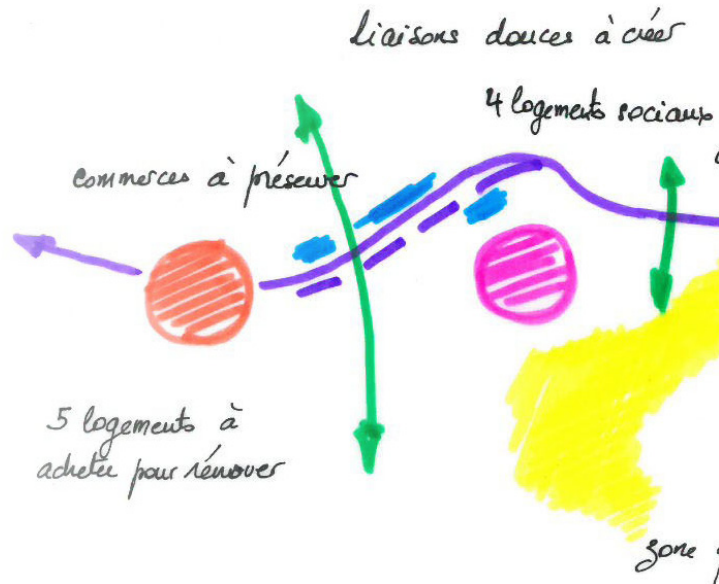 liaisons douces à créer
4 logements sociaux
commerces à préserver
5 logements à
acheter pour rénover
zone